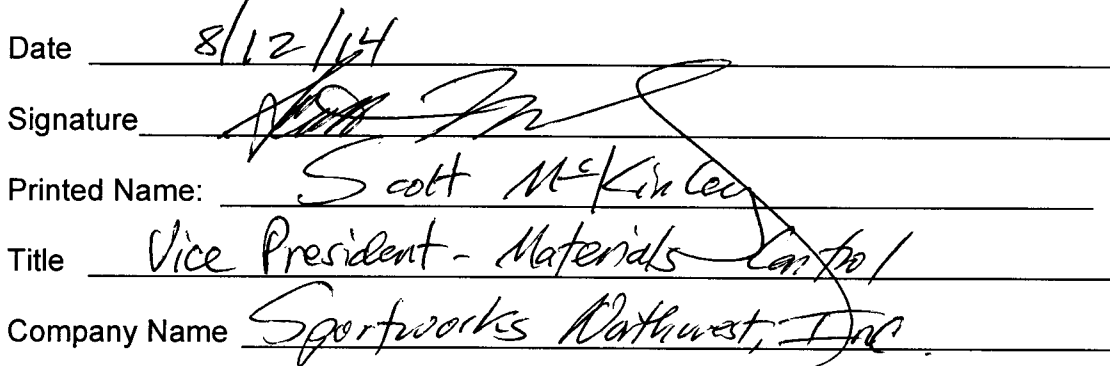 Date 8/12/14
Signature
Printed Name: Scott McKinley
Title Vice President - Materials Control
Company Name Sportworks Northwest, Inc.